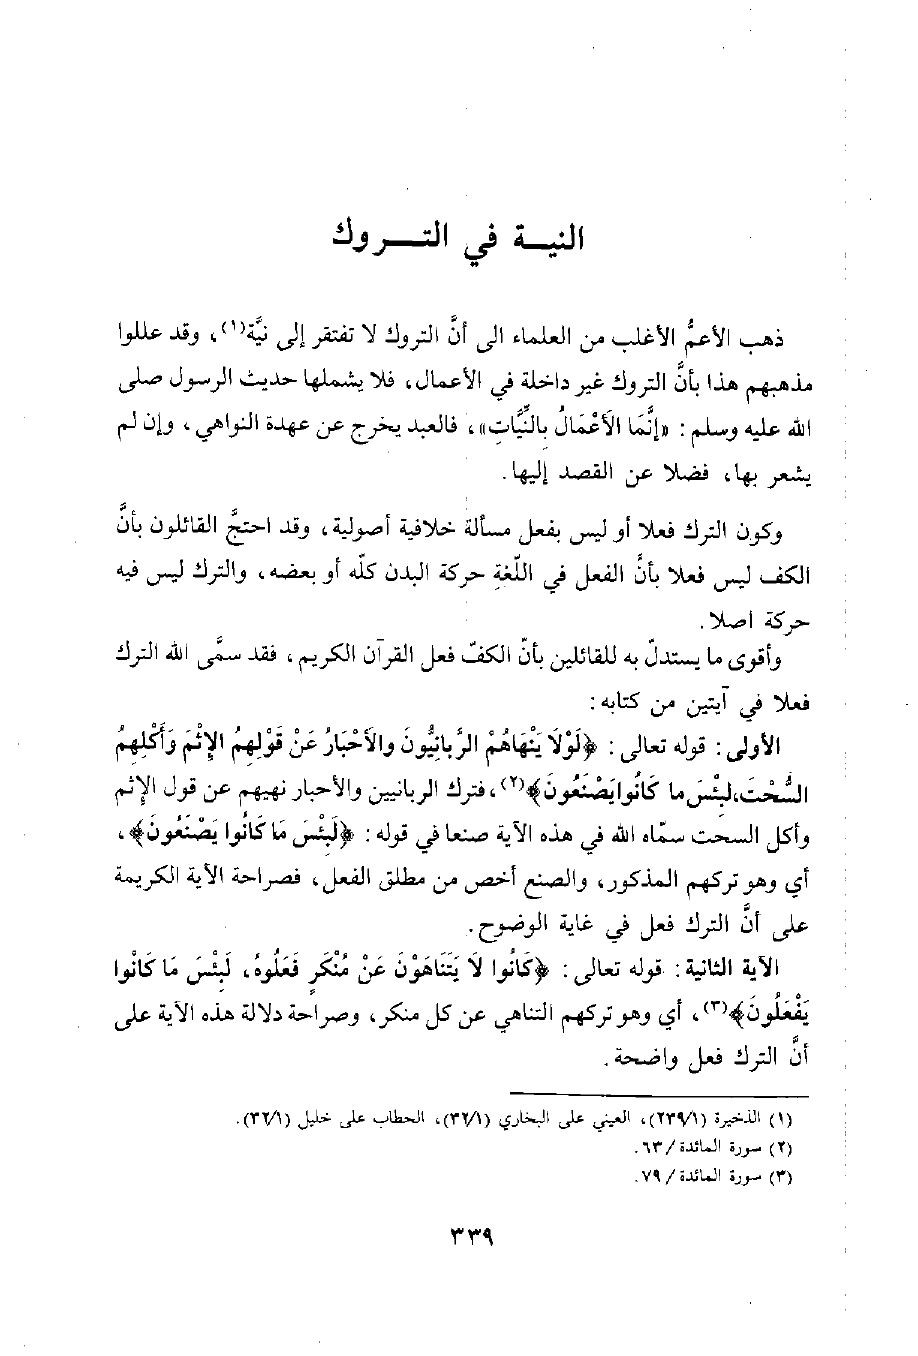 النيـــة في التـــروك
ذهب الأعمُّ الأغلب من العلماء الى أنَّ التروك لا تفتقر إلى نيَّة(١)، وقد عللوا
مذهبهم هذا بأنَّ التروك غير داخلة في الأعمال، فلا يشملها حديث الرسول صلى
الله عليه وسلم : «إنَّمَا الأَعْمَالُ بالنِّيَّات»، فالعبد يخرج عن عهدة النواهي، وإن لم
يشعر بها، فضلا عن القصد إليها.
وكون الترك فعلا أو ليس بفعل مسألة خلافية أصولية، وقد احتجَّ القائلون بأنَّ
الكف ليس فعلا بأنَّ الفعل في اللّغةِ حركة البدن كلّه أو بعضه، والترك ليس فيه
حركة اصلا.
وأقوى ما يستدلّ به للقائلين بأنّ الكفّ فعل القرآن الكريم، فقد سمَّى الله الترك
فعلا في آيتين من كتابه :
الأولى : قوله تعالى : ﴿لَوْلَا يَنْهَاهُمْ الرَّبانِيُّونَ والأَحْبَارُ عَنْ قَوْلِهِمُ الإِثْمَ وَأَكْلِهِمُ
السُّحْتَ، لَبِئْسَ ما كَانُوا يَصْنَعُونَ﴾(٢)، فترك الربانيين والأحبار نهيهم عن قول الإثم
وأكل السحت سمّاه الله في هذه الآية صنعا في قوله : ﴿لَبِئْسَ مَا كَانُوا يَصْنَعُونَ﴾،
أي وهو تركهم المذكور، والصنع أخص من مطلق الفعل، فصراحة الآية الكريمة
على أنَّ الترك فعل في غاية الوضوح.
الآية الثانية : قوله تعالى : ﴿كَانُوا لَا يَتَنَاهَوْنَ عَنْ مُنْكَرٍ فَعَلُوهُ، لَبِئْسَ مَا كَانُوا
يَفْعَلُونَ﴾(٣)، أي وهو تركهم التناهي عن كل منكر، وصراحة دلالة هذه الآية على
أنَّ الترك فعل واضحة.
(١) الذخيرة (٢٣٩/١)، العيني على البخاري (٣٢/١)، الحطاب على خليل (٣٢/١).
(٢) سورة المائدة / ٦٣.
(٣) سورة المائدة / ٧٩.
٣٣٩